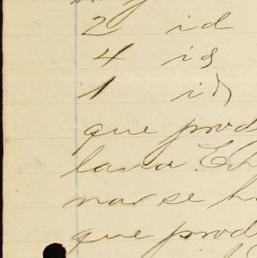 2 id
4 id
1 id
que prod
lana. En
nar se h
que prod